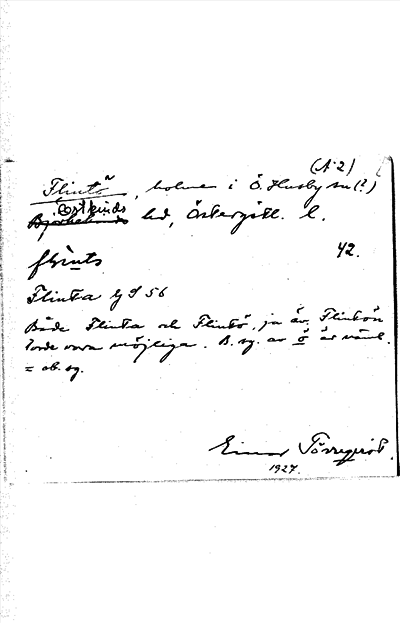 (N 2)
Flintö, holme i Ö. Husby sn(?)
Östkinds
Björkekinds hd, Östergötl. l.
flìnts 42.
Flinta GS 56
Både Flinta och Flintö, ja äv. Flintön
torde vara möjliga. B. sg. av ö är näml.
= ob. sg.
Einar Törnqvist
1927.